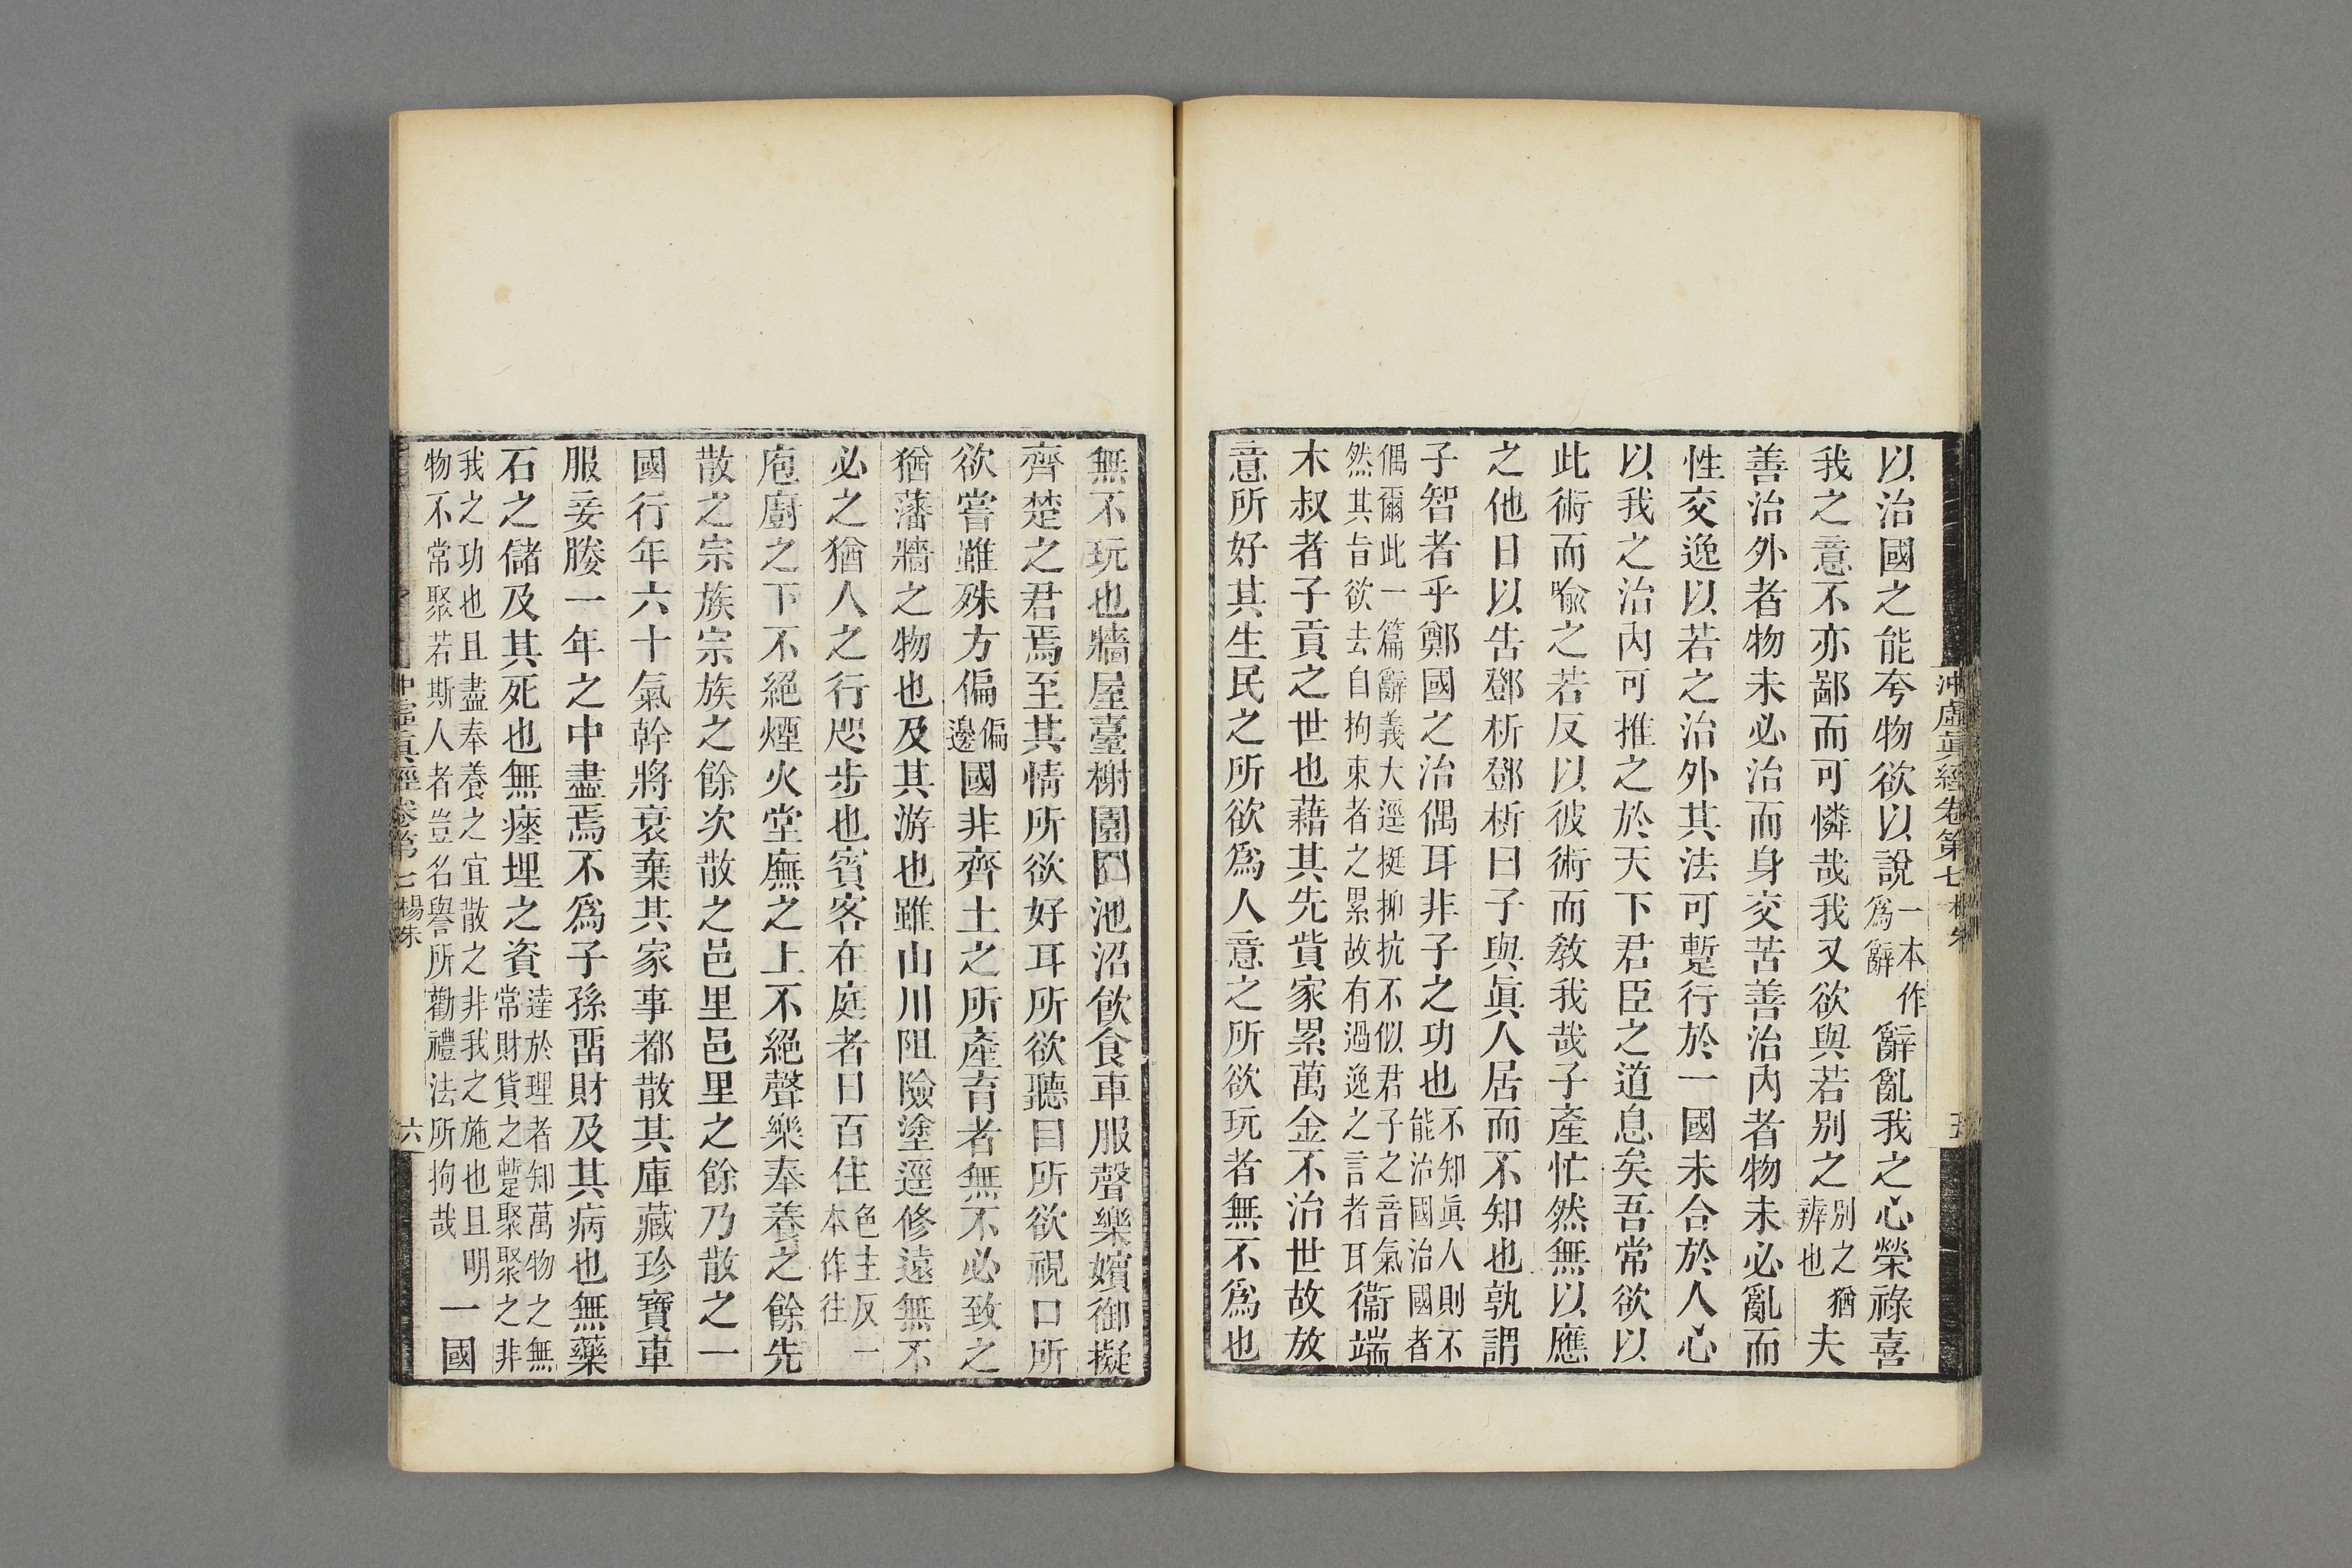 以治國之能夸物欲以說一本作爲辭辭亂我之心榮祿喜
我之意不亦鄙而可憐哉我又欲與若別之別之猶辨也夫
善治外者物未必治而身交苦善治內者物未必亂而
性交逸以若之治外其法可暫行於一國未合於人心
以我之治內可推之於天下君臣之道息矣吾常欲以
此術而喩之若反以彼術而敎我哉子產忙然無以應
之他日以告鄧析鄧析曰子與眞人居而不知也孰謂
子智者乎鄭國之治偶耳非子之功也不知眞人則不能治國治國者
偶爾此一篇辭義大逕挺抑抗不似君子之音氣然其旨欲去自拘束者之累故有過逸之言者耳衞端
木叔者子貢之世也藉其先貲家累萬金不治世故放
意所好其生民之所欲爲人意之所欲玩者無不爲也
沖虛眞經卷第七
無不玩也牆屋臺榭園囿池沼飮食車服聲樂嬪御擬
齊楚之君焉至其情所欲好耳所欲聽目所欲視口所
欲嘗雖殊方偏偏邊國非齊土之所產育者無不必致之
猶藩牆之物也及其游也雖山川阻險塗逕修遠無不
必之猶人之行咫步也賓客在庭者日百住色主反一本作往
庖廚之下不絕煙火堂廡之上不絕聲樂奉養之餘先
散之宗族宗族之餘次散之邑里邑里之餘乃散之一
國行年六十氣幹將衰棄其家事都散其庫藏珍寶車
服妾媵一年之中盡焉不爲子孫畱財及其病也無藥
石之儲及其死也無瘞埋之資達於理者知萬物之無常財貨之暫聚聚之非
我之功也且盡奉養之宜散之非我之施也且明物不常聚若斯人者豈名譽所勸禮法所拘哉一國
沖虛眞經卷第七 楊朱 六